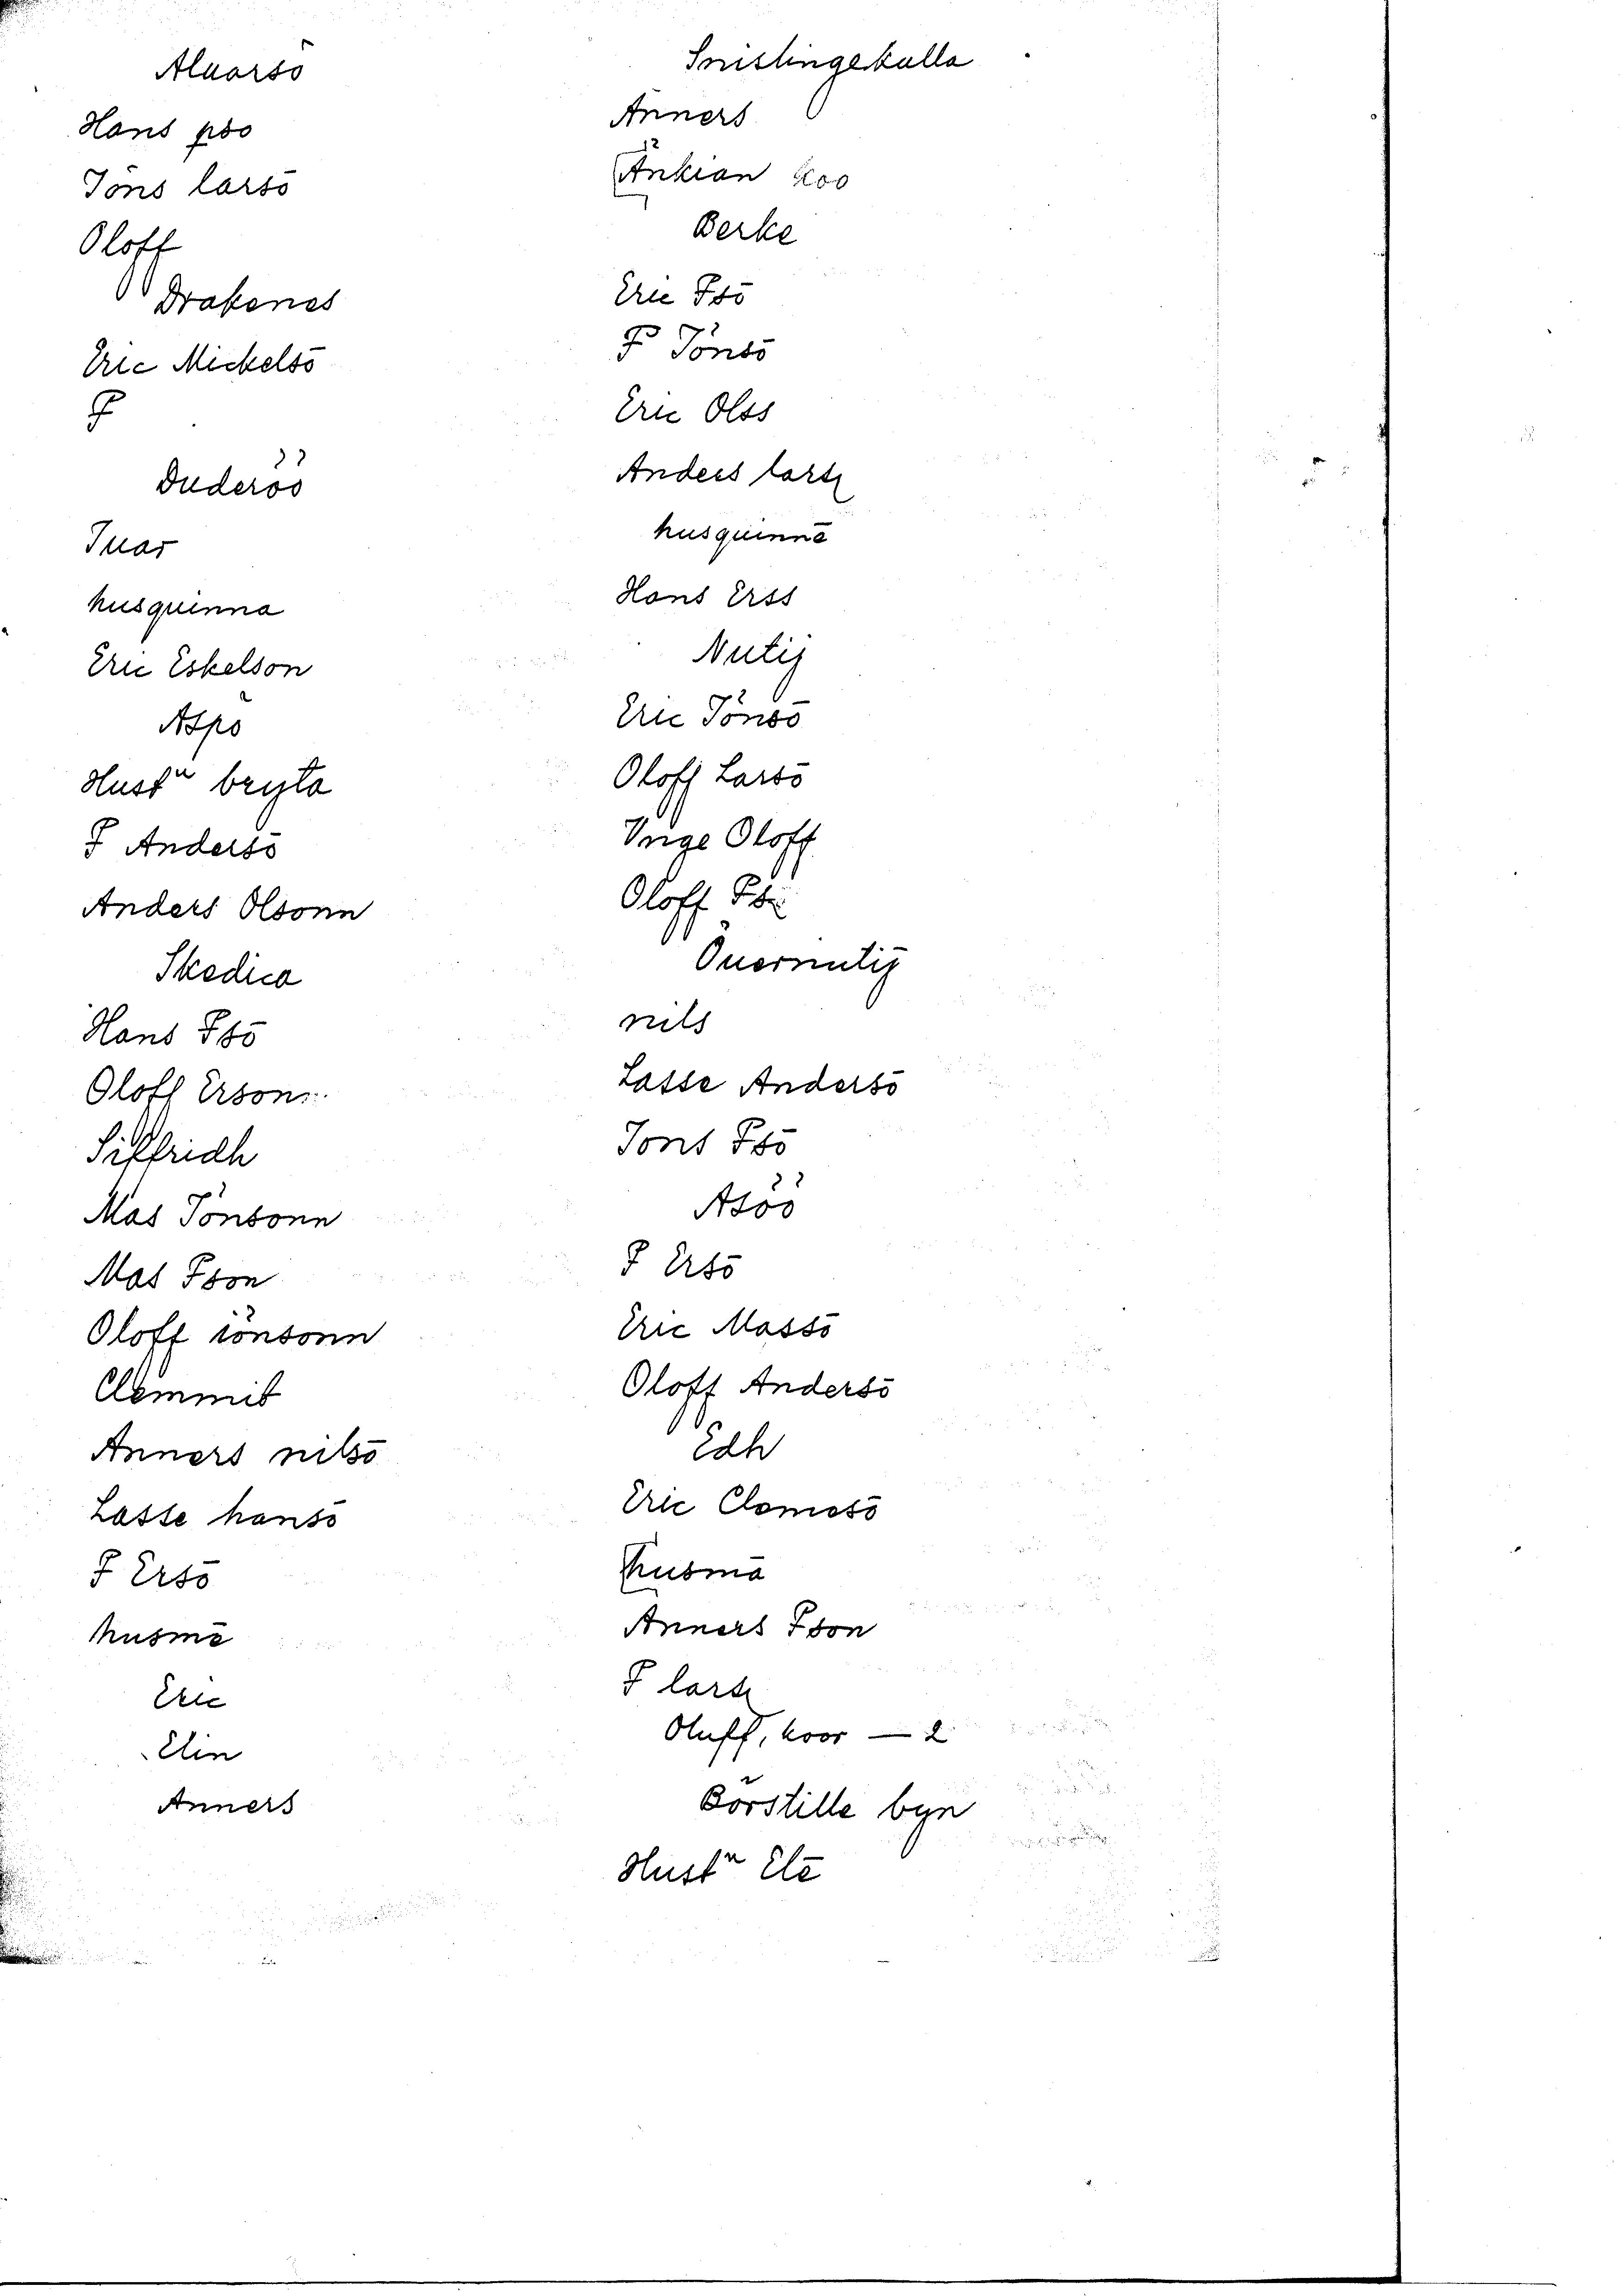 Aluarsö
Hans pso
Jöns larsō
Oloff
Drakenes
Eric Mickelsō
P
Duderöö
Iuar
husquinna
Eric Eskelson
Aspö
Hustu bryta
P Andersō
Anders Olsonn
Skedica
Hans Psō
Oloff Erson
Siffridh
Mas Jönsonn
Mas Pson
Oloff iönsonn
Clemmit
Anners nilsō
Lasse hansō
P Ersō
husmē
Eric
Elin
Anners
Snislingekulla
Anners
Änkian
Berke
Eric Psō
P Jönsō
Eric Olss
Anders lars
husquinnē
Hans Erss
Nutij
Eric Jönsō
Oloff Larsō
Vnge Oloff
Oloff
Öuernutij
nils
Lasse Andersō
Jons Psō
Asöö
P Ersō
Eric Massō
Oloff Andersō
Edh
Eric Clemetsō
husmā
Anners Pson
P lars
Oluff, koor — 2
Börstille byn
Hustu Elē